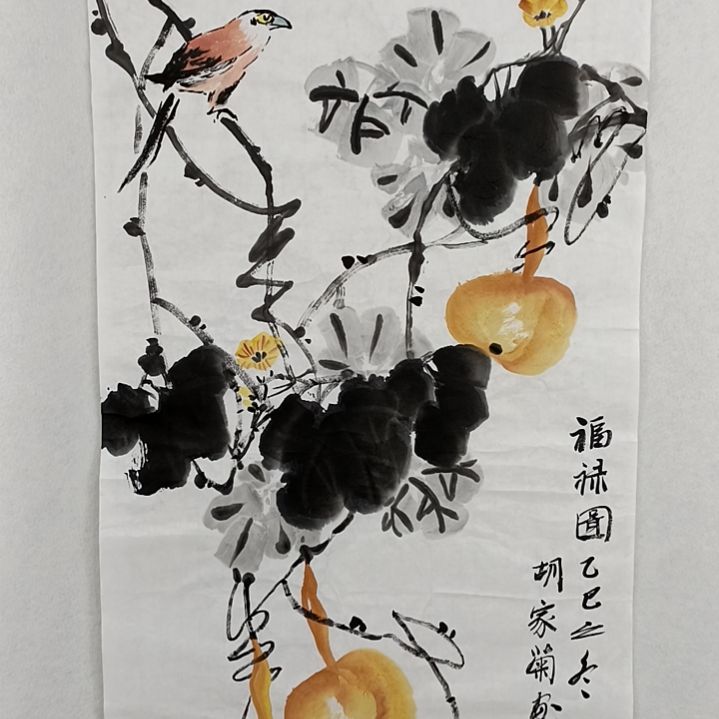 福禄图乙巳之冬
胡家菊画